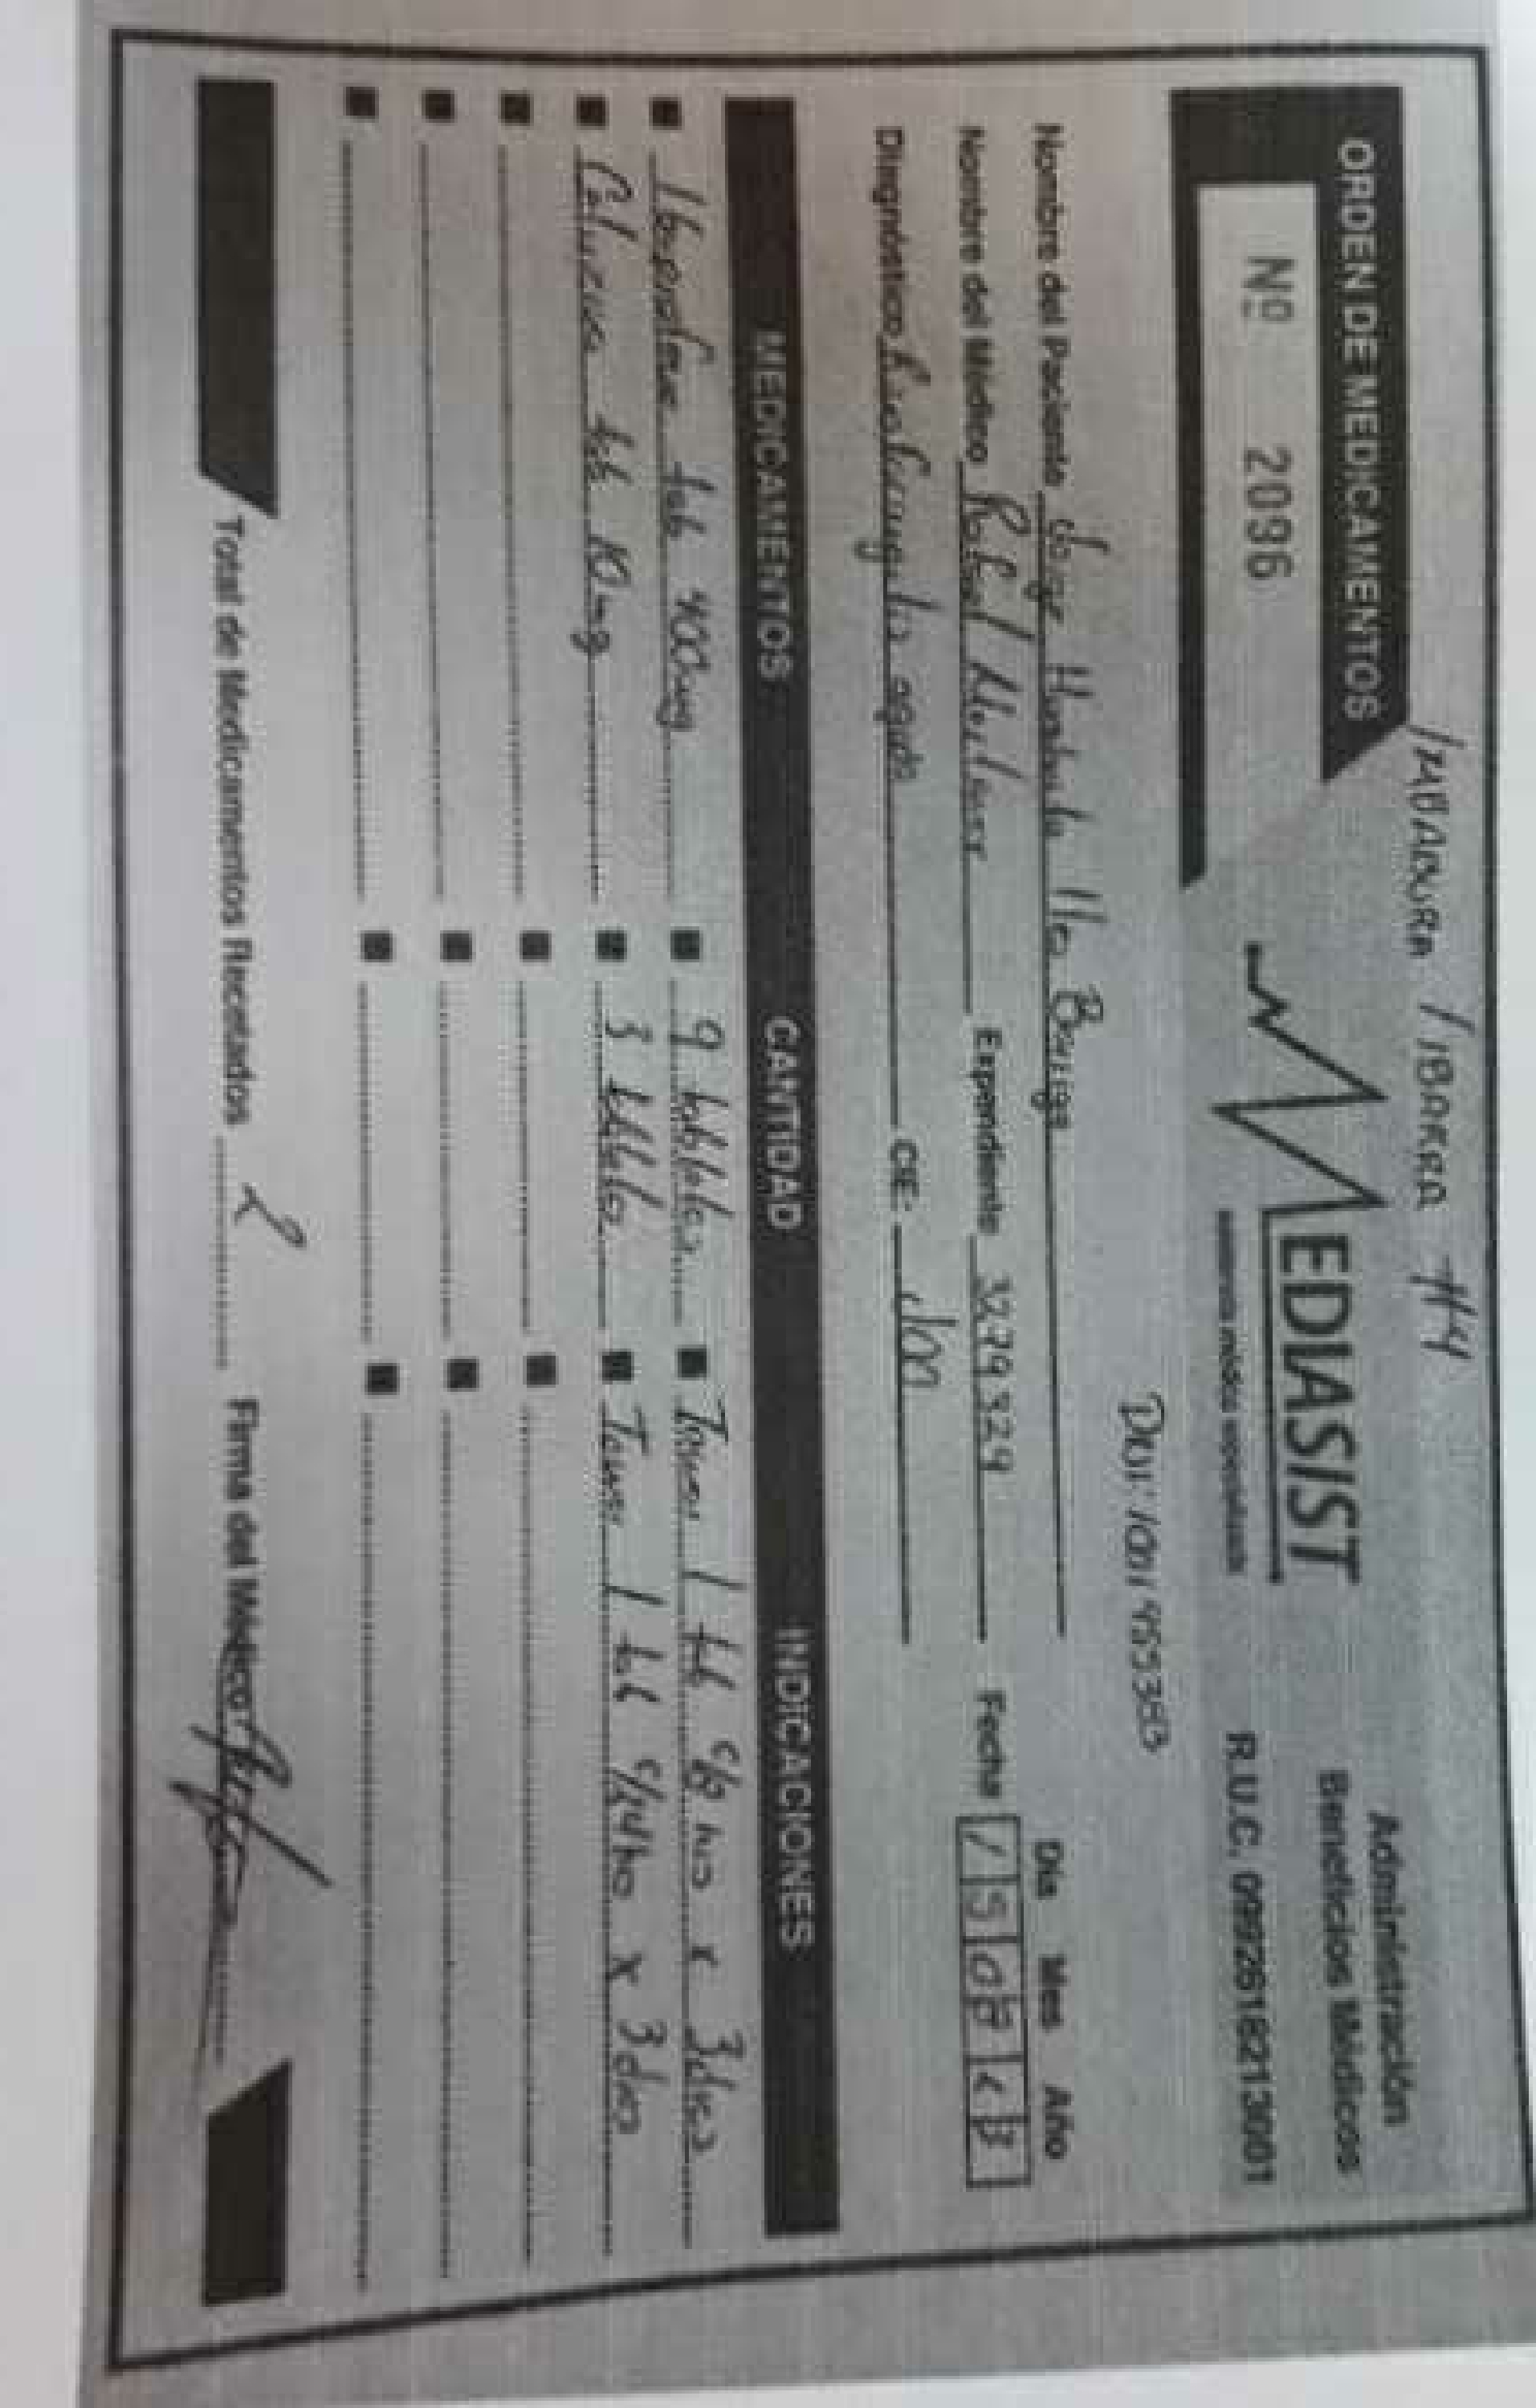 IMBABURA IBARRA #4
ORDEN DE MEDICAMENTOS
Nº 2096
MEDIASIST
asistencia médica especializada
Administración
Beneficios Médicos
R.U.C. 0992618213001
1001455383
Nombre del Paciente Jorge Borja
Nombre del Médico Rafael Expendiente 3279329 Fecha
Día Mes Año
15 08
Diagnóstico Rinofaringitis aguda CIE: J00
MEDICAMENTOS CANTIDAD INDICACIONES
Ibuprofeno tab 400mg 9 tabletas Tomar 1 tab c/8 hrs x 3 días
tab 10mg 3 tabletas Tomar 1 tab c/24 hrs x 3 días
Total de Medicamentos Recetados 2 Firma del Médico